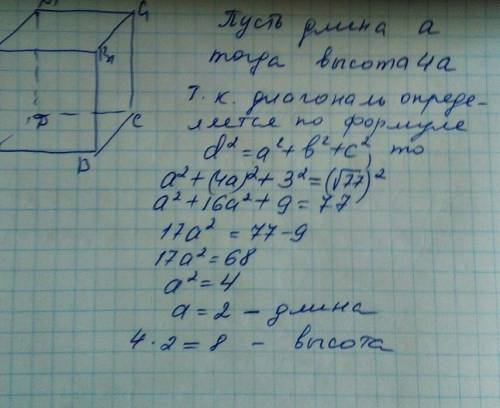 C₁
B₁
D
C
B
Пусть длина a
тогда высота 4a
Т.к. диагональ опреде-
ляется по формуле
d² = a² + b² + c², то
a² + (4a)² + 3² = (√77)²
a² + 16a² + 9 = 77
17a² = 77 - 9
17a² = 68
a² = 4
a = 2 - длина
4 · 2 = 8 - высота